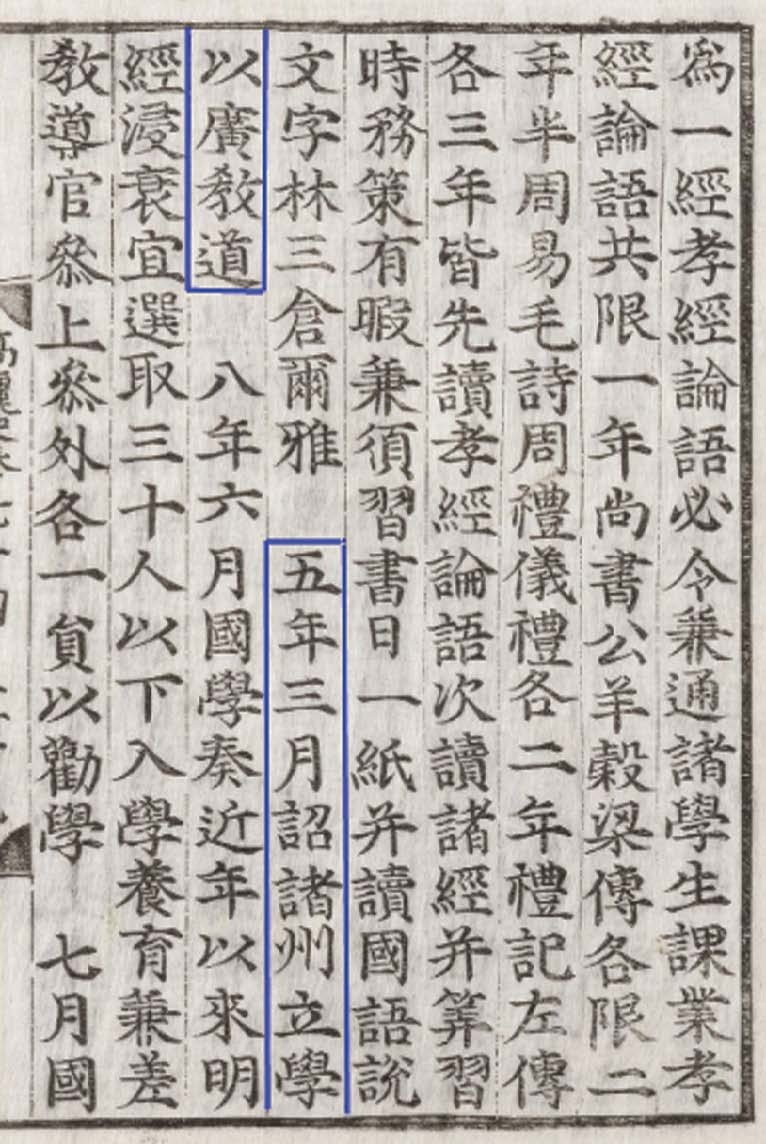 爲一經孝經論語必令兼通諸學生課業孝
經論語共限一年尚書公羊穀梁傳各限二
年半周易毛詩周禮儀禮各二年禮記左傳
各三年皆先讀孝經論語次讀諸經并筭習
時務策有暇兼須習書日一紙并讀國語說
文字林三倉爾雅 五年三月詔諸州立學
以廣敎道 八年六月國學奏近年以來明
經浸衰宜選取三十人以下入學養育兼差
敎導官叅上叅外各一負以勸學 七月國